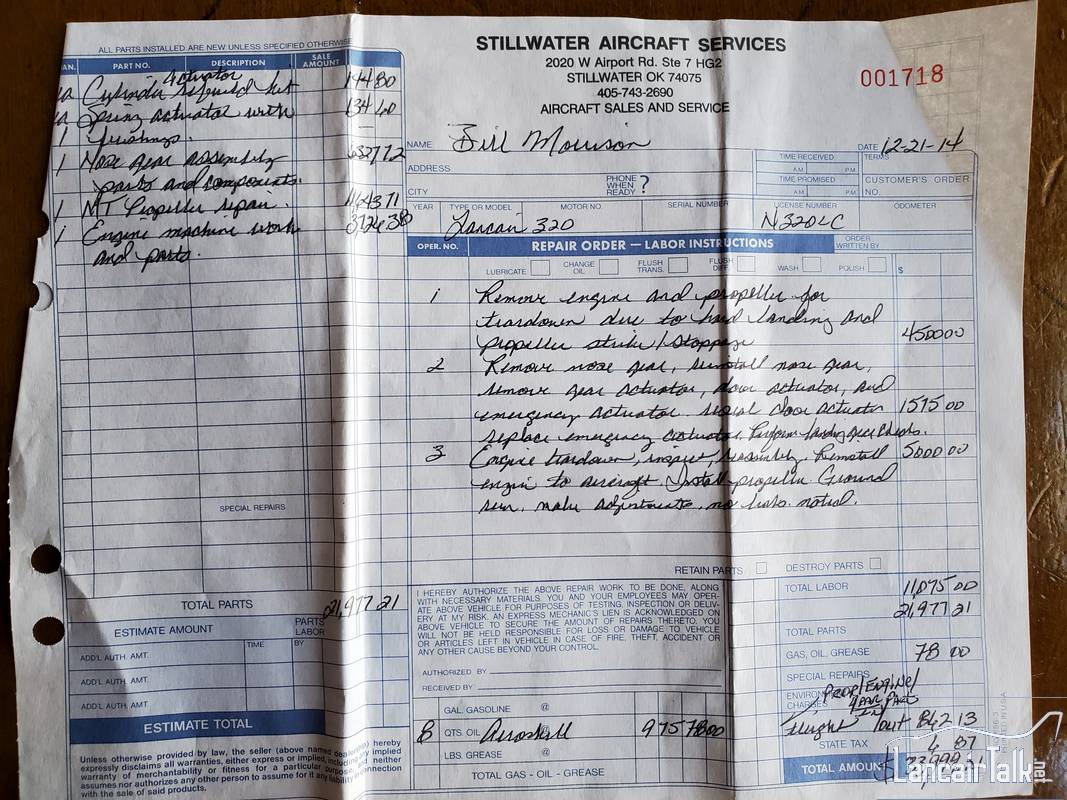 ALL PARTS INSTALLED ARE NEW UNLESS SPECIFIED OTHERWISE
AN. PART NO. DESCRIPTION SALE AMOUNT
Actuator
Cylinder rebuild kit 144 80
Spring actuator with 134 60
1 bushings.
1 Nose gear assembly
parts and components.
1 MT Propeller repair
1 Engine machine work
and parts.
SPECIAL REPAIRS
TOTAL PARTS 21,977 21
ESTIMATE AMOUNT PARTS LABOR
TIME BY
ADD'L AUTH. AMT.
ADD'L AUTH. AMT.
ADD'L AUTH. AMT.
ESTIMATE TOTAL
Unless otherwise provided by law, the seller (above named dealership) hereby
expressly disclaims all warranties, either express or implied, including any implied
warranty of merchantability or fitness for a particular purpose, and neither
assumes nor authorizes any other person to assume for it any liability in connection
with the sale of said products.
STILLWATER AIRCRAFT SERVICES
2020 W Airport Rd. Ste 7 HG2
STILLWATER OK 74075
405-743-2690
AIRCRAFT SALES AND SERVICE
001718
NAME Bill Morrison DATE 12-21-14
ADDRESS TIME RECEIVED AM PM TERMS
CITY PHONE WHEN READY? TIME PROMISED AM PM CUSTOMER'S ORDER NO.
YEAR TYPE OR MODEL MOTOR NO SERIAL NUMBER LICENSE NUMBER ODOMETER
Lancair 320 N320LC
OPER. NO. REPAIR ORDER — LABOR INSTRUCTIONS ORDER WRITTEN BY
LUBRICATE CHANGE OIL FLUSH TRANS. FLUSH DIFF. WASH POLISH $
1 Remove engine and propeller for
teardown due to hard landing and
propeller strike/stoppage 4500 00
2 Remove nose gear, reinstall nose gear,
remove gear actuator, door actuator, and
emergency actuator. reseal door actuator 1575 00
replace emergency actuator. Perform landing gear checks.
3 Engine teardown, inspect, reassembly. Reinstall 5000 00
engine to aircraft. Install propeller. Ground
run, make adjustments, no leaks noted.
RETAIN PARTS DESTROY PARTS
I HEREBY AUTHORIZE THE ABOVE REPAIR WORK TO BE DONE, ALONG
WITH NECESSARY MATERIALS. YOU AND YOUR EMPLOYEES MAY OPER-
ATE ABOVE VEHICLE FOR PURPOSES OF TESTING, INSPECTION OR DELIV-
ERY AT MY RISK. AN EXPRESS MECHANIC'S LIEN IS ACKNOWLEDGED ON
ABOVE VEHICLE TO SECURE THE AMOUNT OF REPAIRS THERETO. YOU
WILL NOT BE HELD RESPONSIBLE FOR LOSS OR DAMAGE TO VEHICLE
OR ARTICLES LEFT IN VEHICLE IN CASE OF FIRE, THEFT, ACCIDENT OR
ANY OTHER CAUSE BEYOND YOUR CONTROL.
AUTHORIZED BY
RECEIVED BY
GAL. GASOLINE @
8 QTS. OIL Aeroshell @ 9 75 78 00
LBS. GREASE @
TOTAL GAS - OIL - GREASE
TOTAL LABOR 11,075 00
21,977 21
TOTAL PARTS
GAS, OIL, GREASE 78 00
SPECIAL REPAIRS
PROP/ENGINE/
GEAR PARTS
freight IN/out 862 13
STATE TAX 6 87
TOTAL AMOUNT $
LancairTalk.net